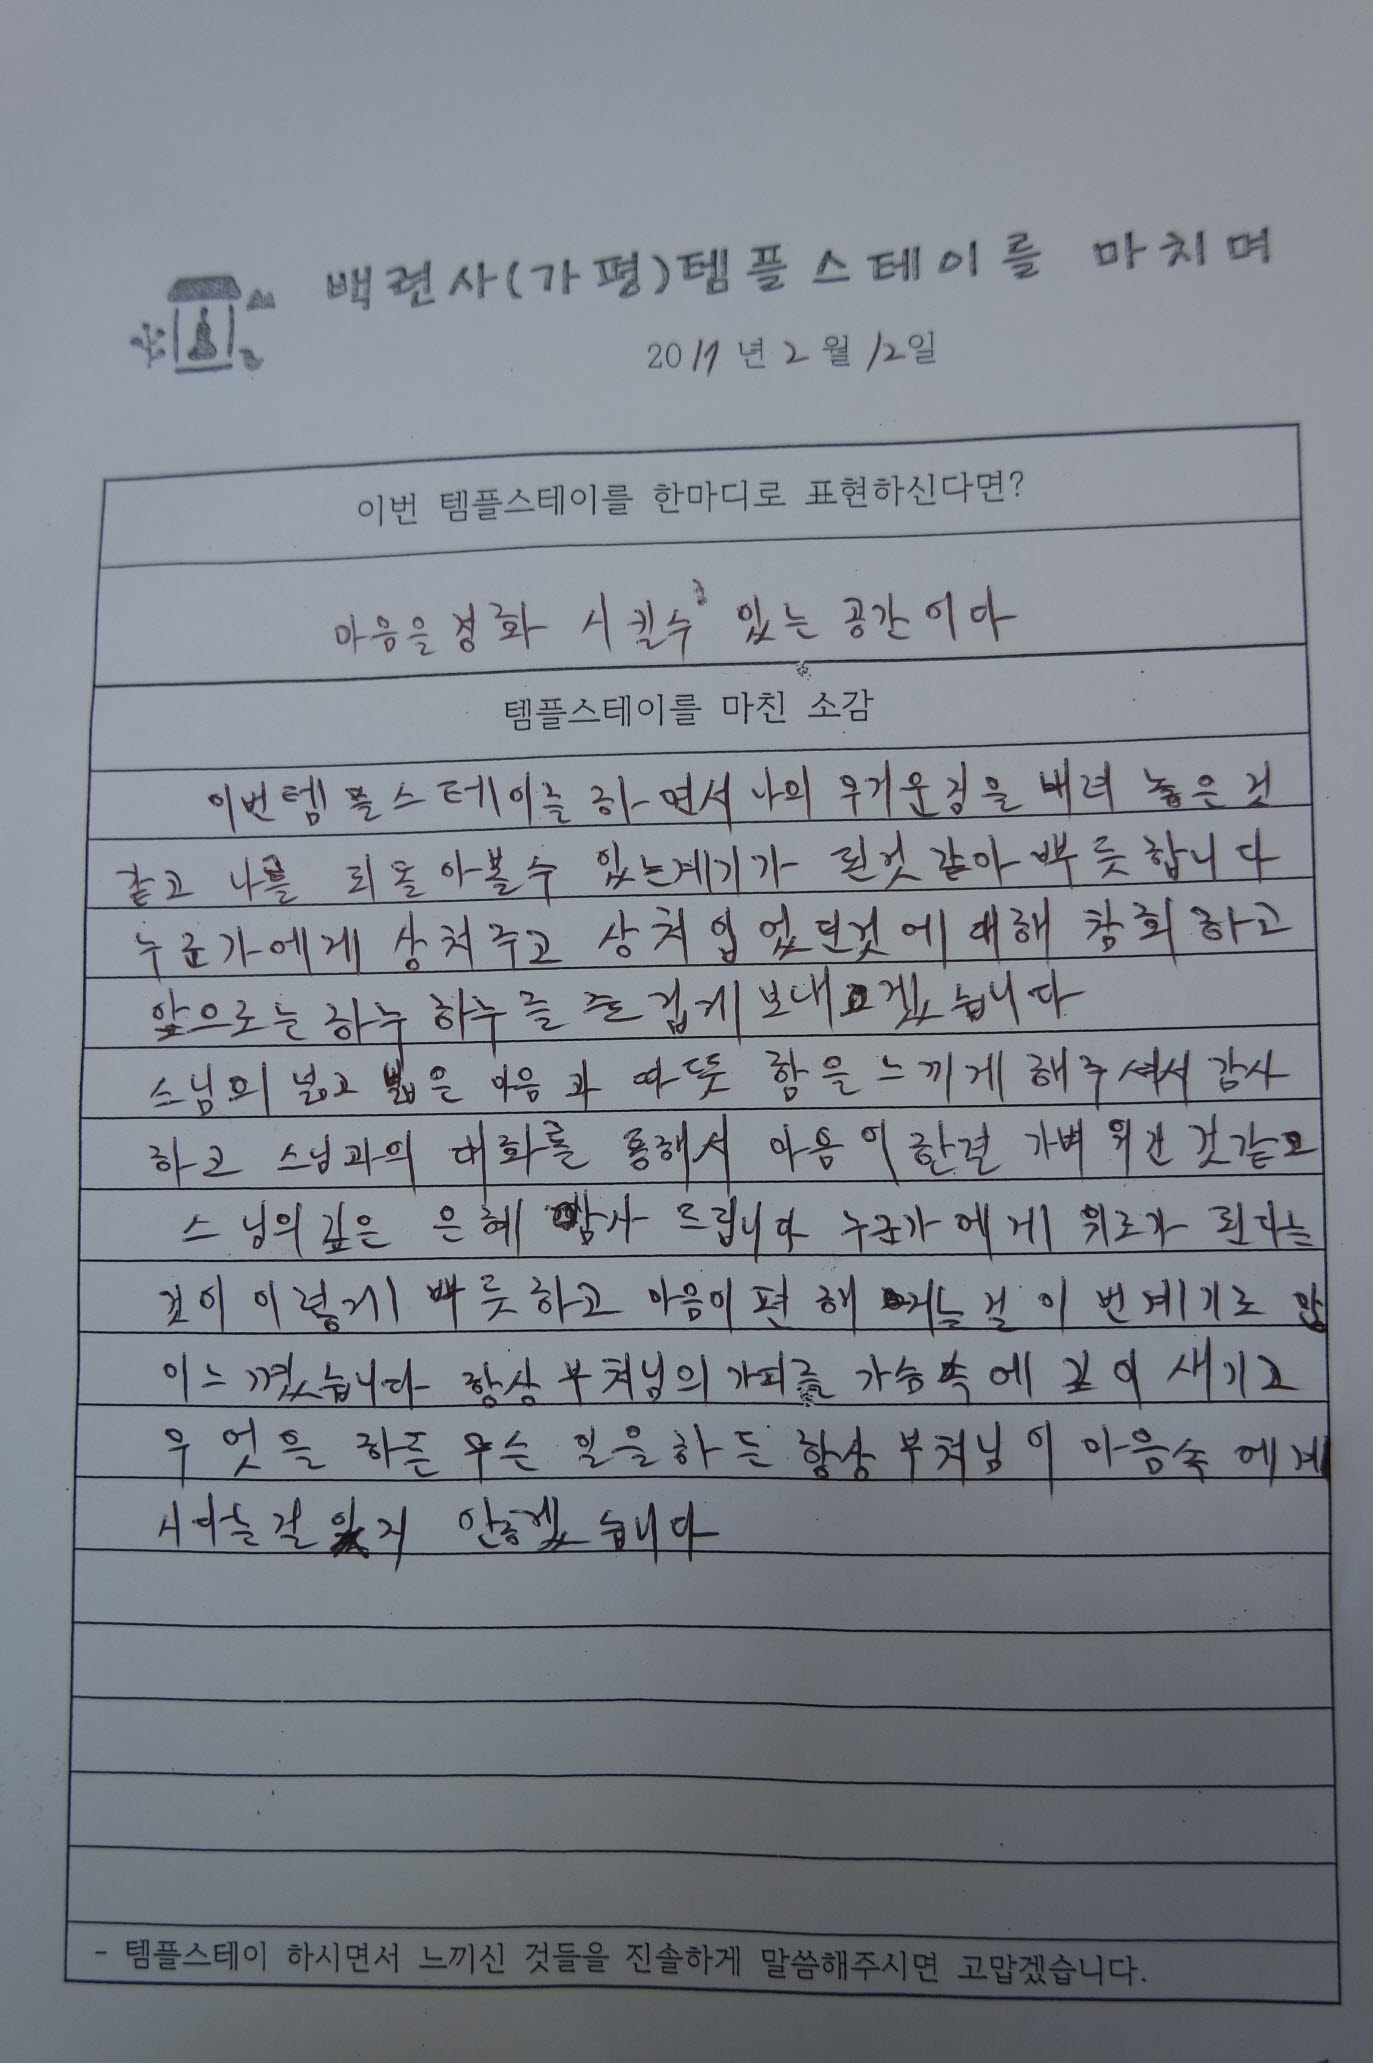 백련사(가평)템플스테이를 마치며
2017년 2월 12일
이번 템플스테이를 한마디로 표현하신다면?
마음을 정화 시킬수 있는 공간이다
템플스테이를 마친 소감
이번템플스테이를 하면서 나의 무거운짐을 내려 놓은 것
같고 나를 뒤돌아볼수 있는계기가 된것 같아 뿌듯합니다
누군가에게 상처주고 상처입었던것에 대해 참회하고
앞으로는 하루하루를 즐겁게 보내고겠습니다
스님의 넓고 넓은 마음과 따뜻함을 느끼게 해주셔서 감사
하고 스님과의 대화를 통해서 마음이 한결 가벼워진 것같고
스님의 깊은 은혜 감사 드립니다 누군가에게 위로가 된다는
것이 이렇게 뿌듯하고 마음이 편해 지는걸 이번계기로 많
이느꼈습니다 항상 부처님의 가피를 가슴속에 깊이 새기고
무엇을 하든 무슨 일을하든 항상 부처님이 마음속에계
시다는걸 잊지 안켔습니다
- 템플스테이 하시면서 느끼신 것들을 진솔하게 말씀해주시면 고맙겠습니다.